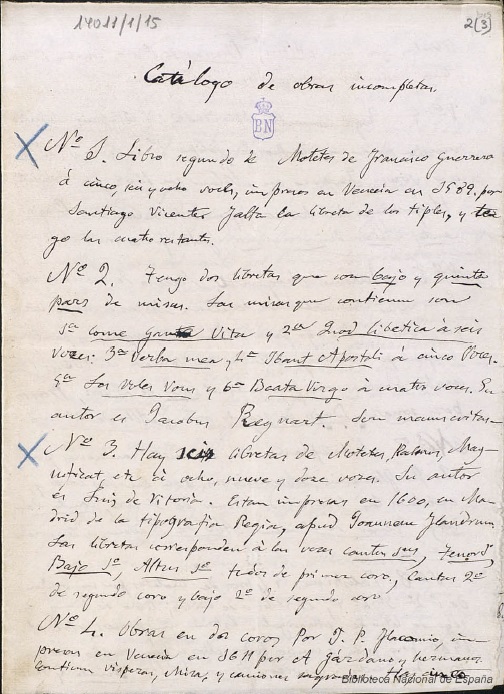 14011/1/15
2(3)
Catálogo de obras incompletas.
BN
Nº 1. Libro segundo de Motetes de Francisco Guerrero
á cinco, seis y ocho voces, impresos en Venecia en 1589. por
Santiago Vicenter falta la libreta de los tiples, y ten
go las cuatro restantes.
Nº 2. Tengo dos libretas que son bajo y quinta
pars de misas. Las misas que contienen son
1ª Come Vita y 2ª Quod libetica á seis
voces. 3ª Verba mea y 4ª Ibant Apostoli á cinco Voces.
5ª Vous y 6ª Beata Virgo á cuatro voces. Su
autor es Jacobus Regnart. Son manuscritas
Nº 3. Hay seis libretas de Motetes, Salmos, Mag-
nificat, etc á ocho, nueve y doce voces. Su autor
és Luis de Vitoria. Estan impresas en 1600, en Ma
drid de la tipografia Regia, apud Joannem Flandrum
Las libretas corresponden á las voces cantus 1us, Tenor 1º
Bajo 1º, Altus 1º todos de primer coro, Cantus 2º
de segundo coro y bajo 2º de segundo coro
Nº 4. Obras en dos coros Por D. P. im
presas en Venecia en 1611 por A Gárdano y hermanos
contienen visperas, Misa, y canciones á los cinco
Biblioteca Nacional de España